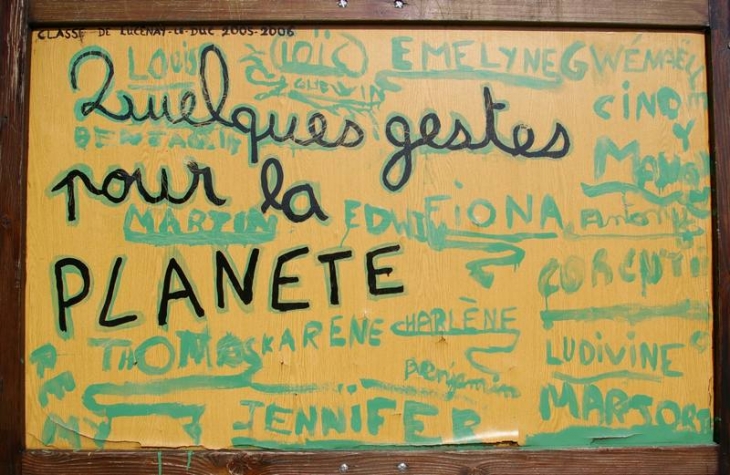 CLASSE DE LUCENAY-LE-DUC 2005-2006
LOUIS LOÏC EMELYNE GWÉNAËLLE
GODWIN
Quelques gestes
CINDY
BENJAMIN
pour la
MARTIN EDWIN FIONA Antony
PLANETE
CORENTIN
THOMAS KARENE CHARLÈNE
LUDIVINE
REMY
Benjamin
JENNIFER
MARJORI